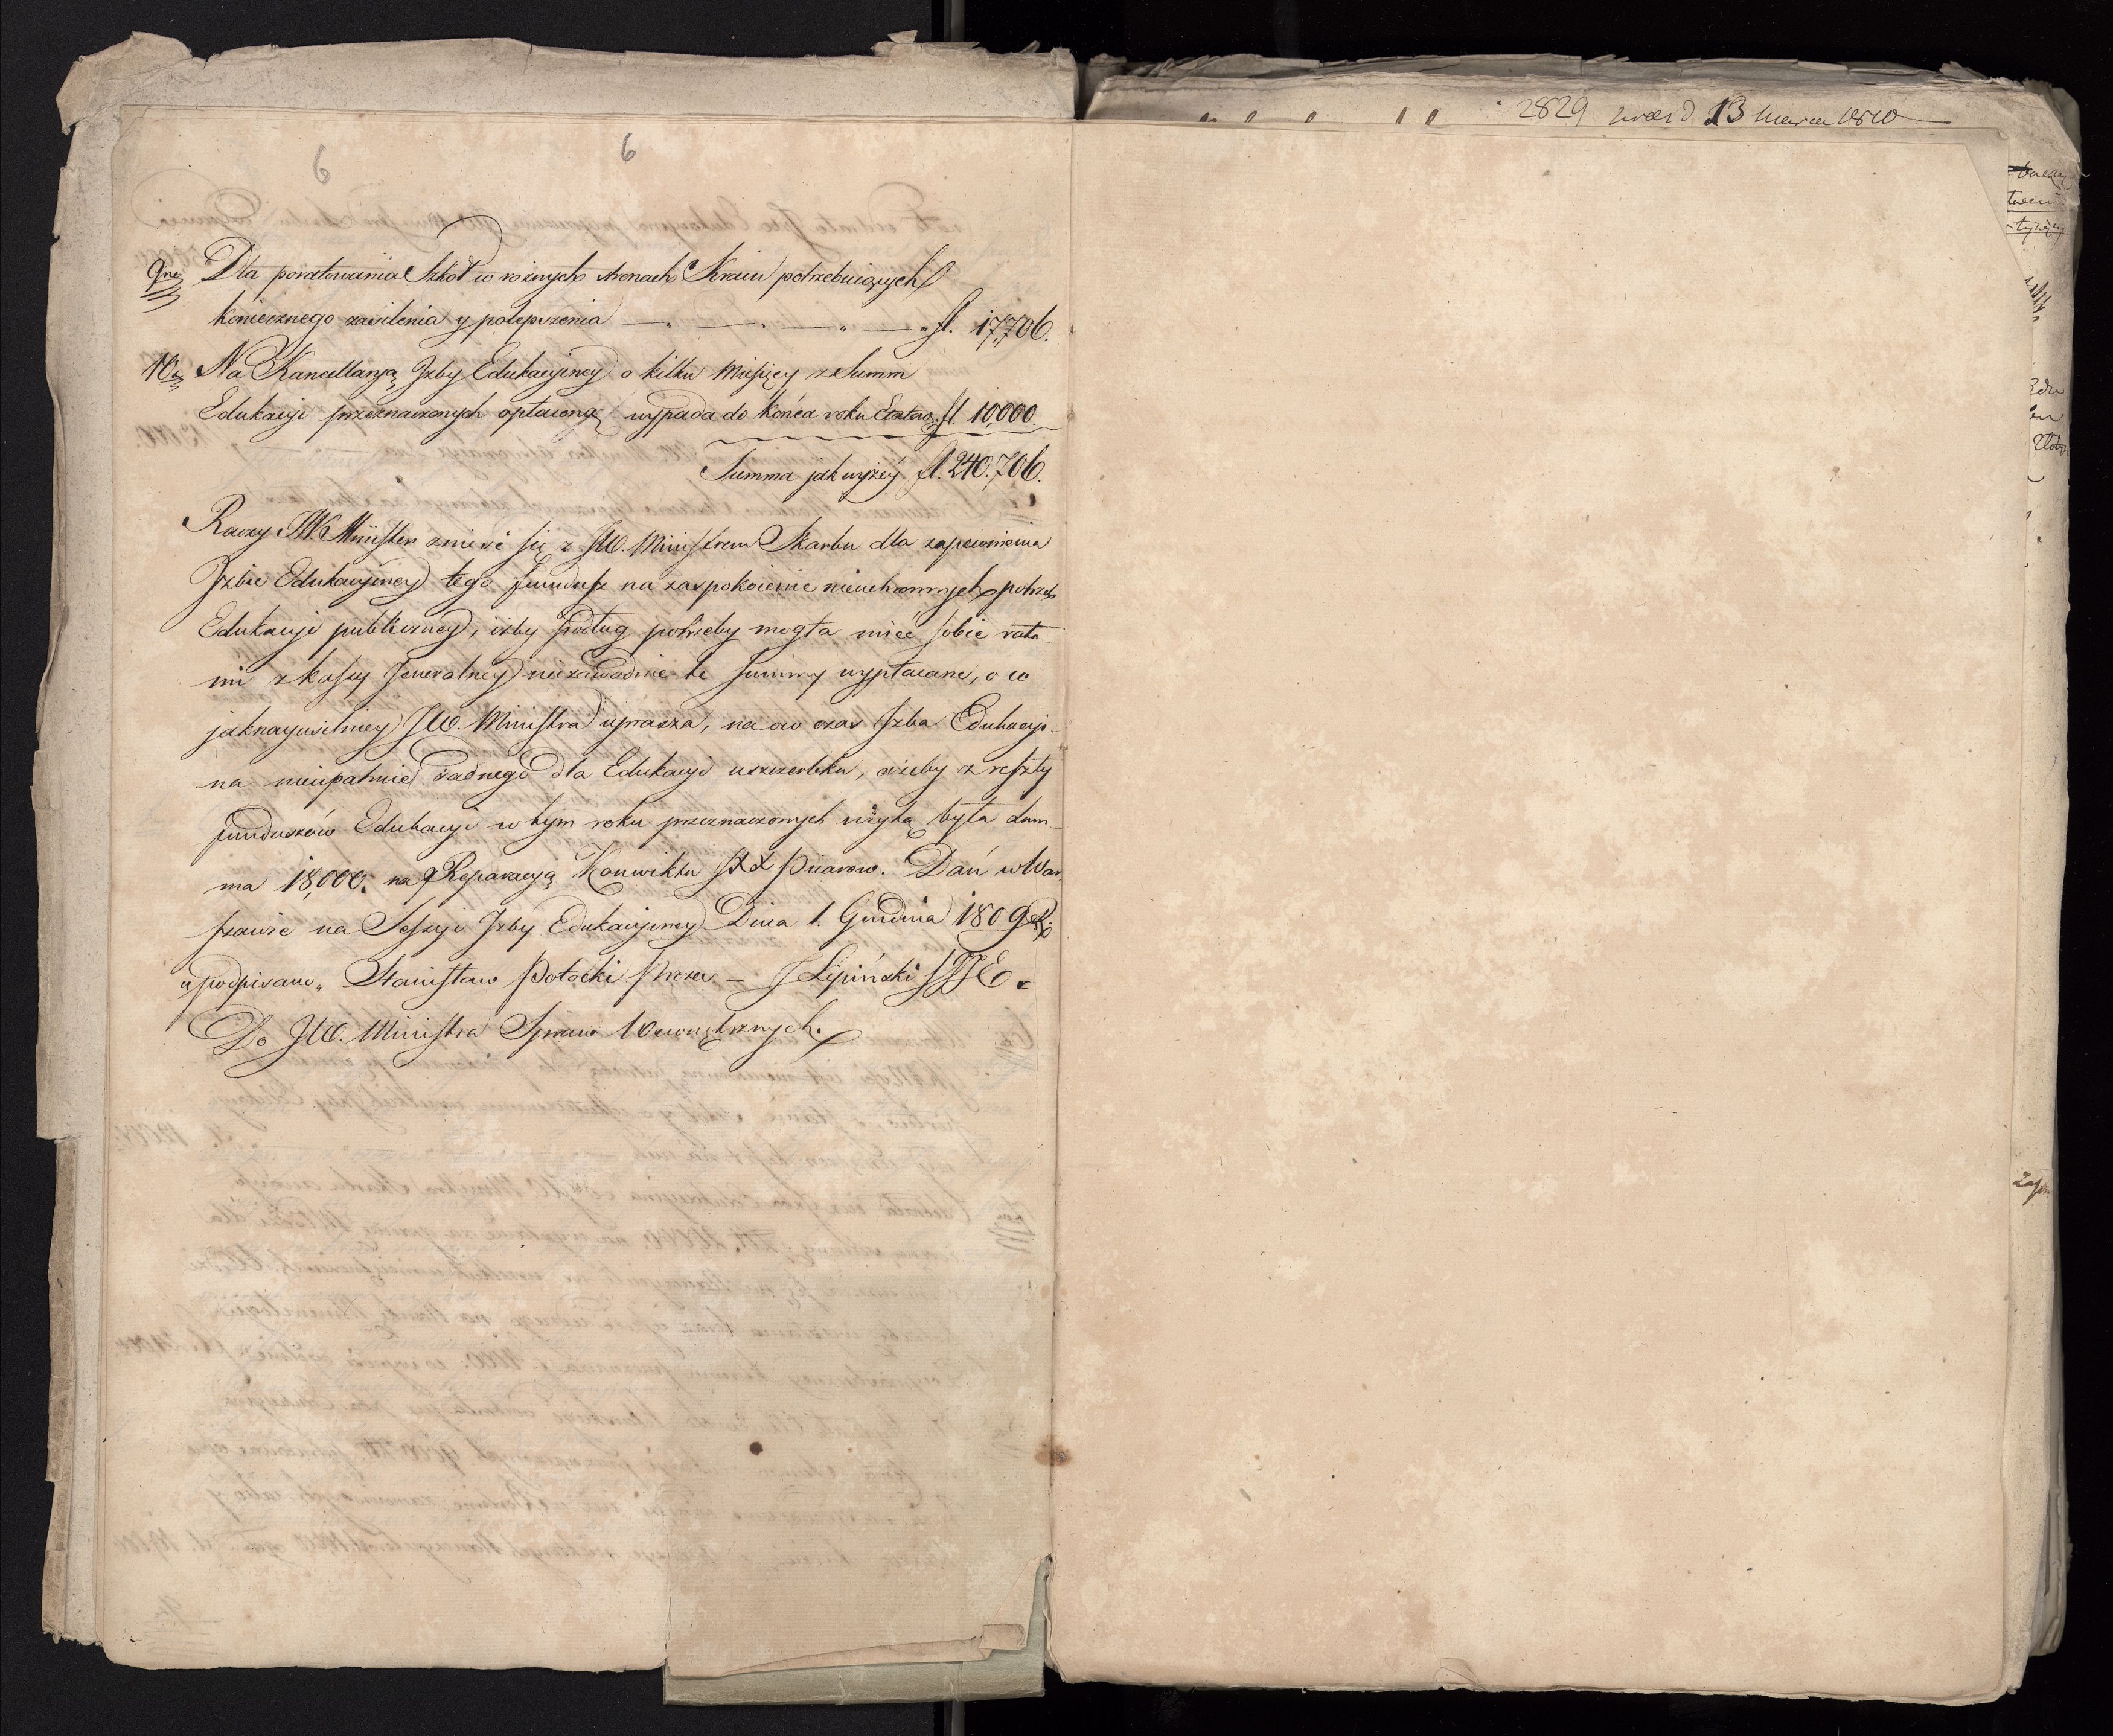 6 6
9no Dla poratowania Szkół w rożnych stronach Kraiu potrzebuiących
koniecznego zasilenia y polepszenia — „ — „ — „ — „ fl. 17,706.
10o Na Kancellaryą Jzby Edukacyiney o kilku Miesięcy z Summ
Edukacyi przeznaczonych opłaconą wypada do końca roku fl. 10,000.
Summa jak wyżey fl. 240.706.
Raczy JW Minister znieść się z JW. Ministrem Skarbu dla zapewnienia
Jzbie Edukacyiney tego funduszu na zaspokoienie nieuchronnych potrzeb
Edukacyi publiczney, iżby podług potrzeby mogła mieć sobie rata
mi z kassy Jeneralney niezawodnie te summy wypłacane, o co
jaknayusilniey JW. Ministra uprasza, na ow czas Jzba Edukacyi-
na nieupatruie żadnego dla Edukacyi uszczerbku, ażeby z reszty
funduszów Edukacyi w tym roku przeznaczonych użytą była Sum-
ma 18,000. na Reparacyą Konwiktu XX Piiarow. Dań w War-
szawie na Sessyi Jzby Edukacyiney Dnia 1. Grudnia 1809 R.
podpisano „ Stanisław Potocki Prezes — J Lipiński SJE.
Do JW. Ministra Spraw Wewnętrznych.
2829 13 Marca 1810